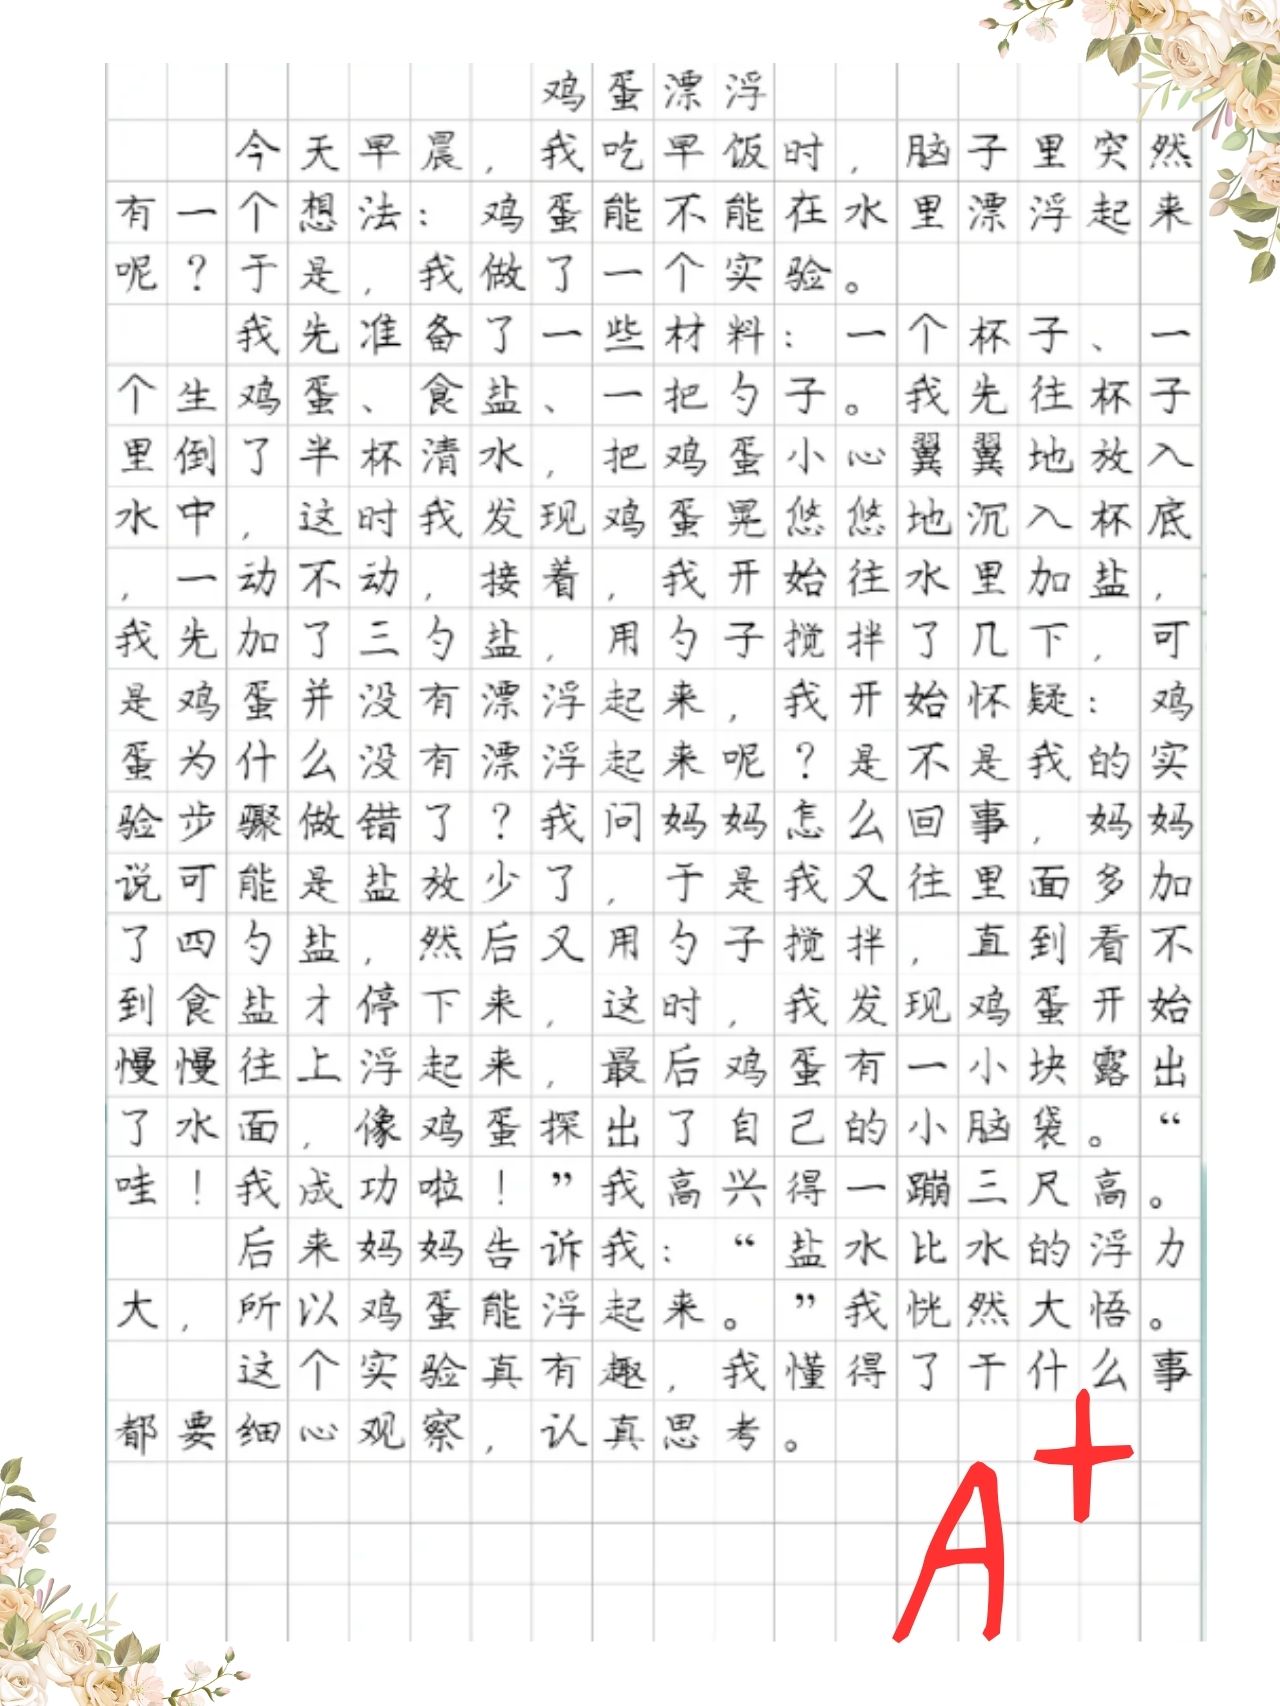 鸡蛋漂浮
今天早晨，我吃早饭时，脑子里突然
有一个想法：鸡蛋能不能在水里漂浮起来
呢？于是，我做了一个实验。
我先准备了一些材料：一个杯子、一
个生鸡蛋、食盐、一把勺子。我先往杯子
里倒了半杯清水，把鸡蛋小心翼翼地放入
水中，这时我发现鸡蛋晃悠悠地沉入杯底
，一动不动，接着，我开始往水里加盐，
我先加了三勺盐，用勺子搅拌了几下，可
是鸡蛋并没有漂浮起来，我开始怀疑：鸡
蛋为什么没有漂浮起来呢？是不是我的实
验步骤做错了？我问妈妈怎么回事，妈妈
说可能是盐放少了，于是我又往里面多加
了四勺盐，然后又用勺子搅拌，直到看不
到食盐才停下来，这时，我发现鸡蛋开始
慢慢往上浮起来，最后鸡蛋有一小块露出
了水面，像鸡蛋探出了自己的小脑袋。“
哇！我成功啦！”我高兴得一蹦三尺高。
后来妈妈告诉我：“盐水比水的浮力
大，所以鸡蛋能浮起来。”我恍然大悟。
这个实验真有趣，我懂得了干什么事
都要细心观察，认真思考。
A+